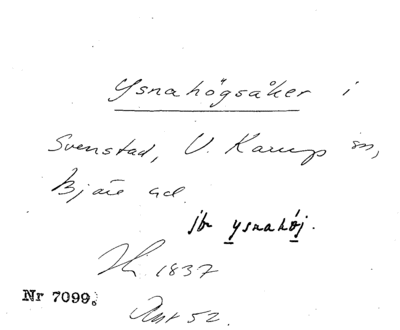 Ysnahögsåker i
Svenstad, V. Karup sn,
Bjäre hd.
jbr ysnahøj.
1837
Nr 7099.
52.